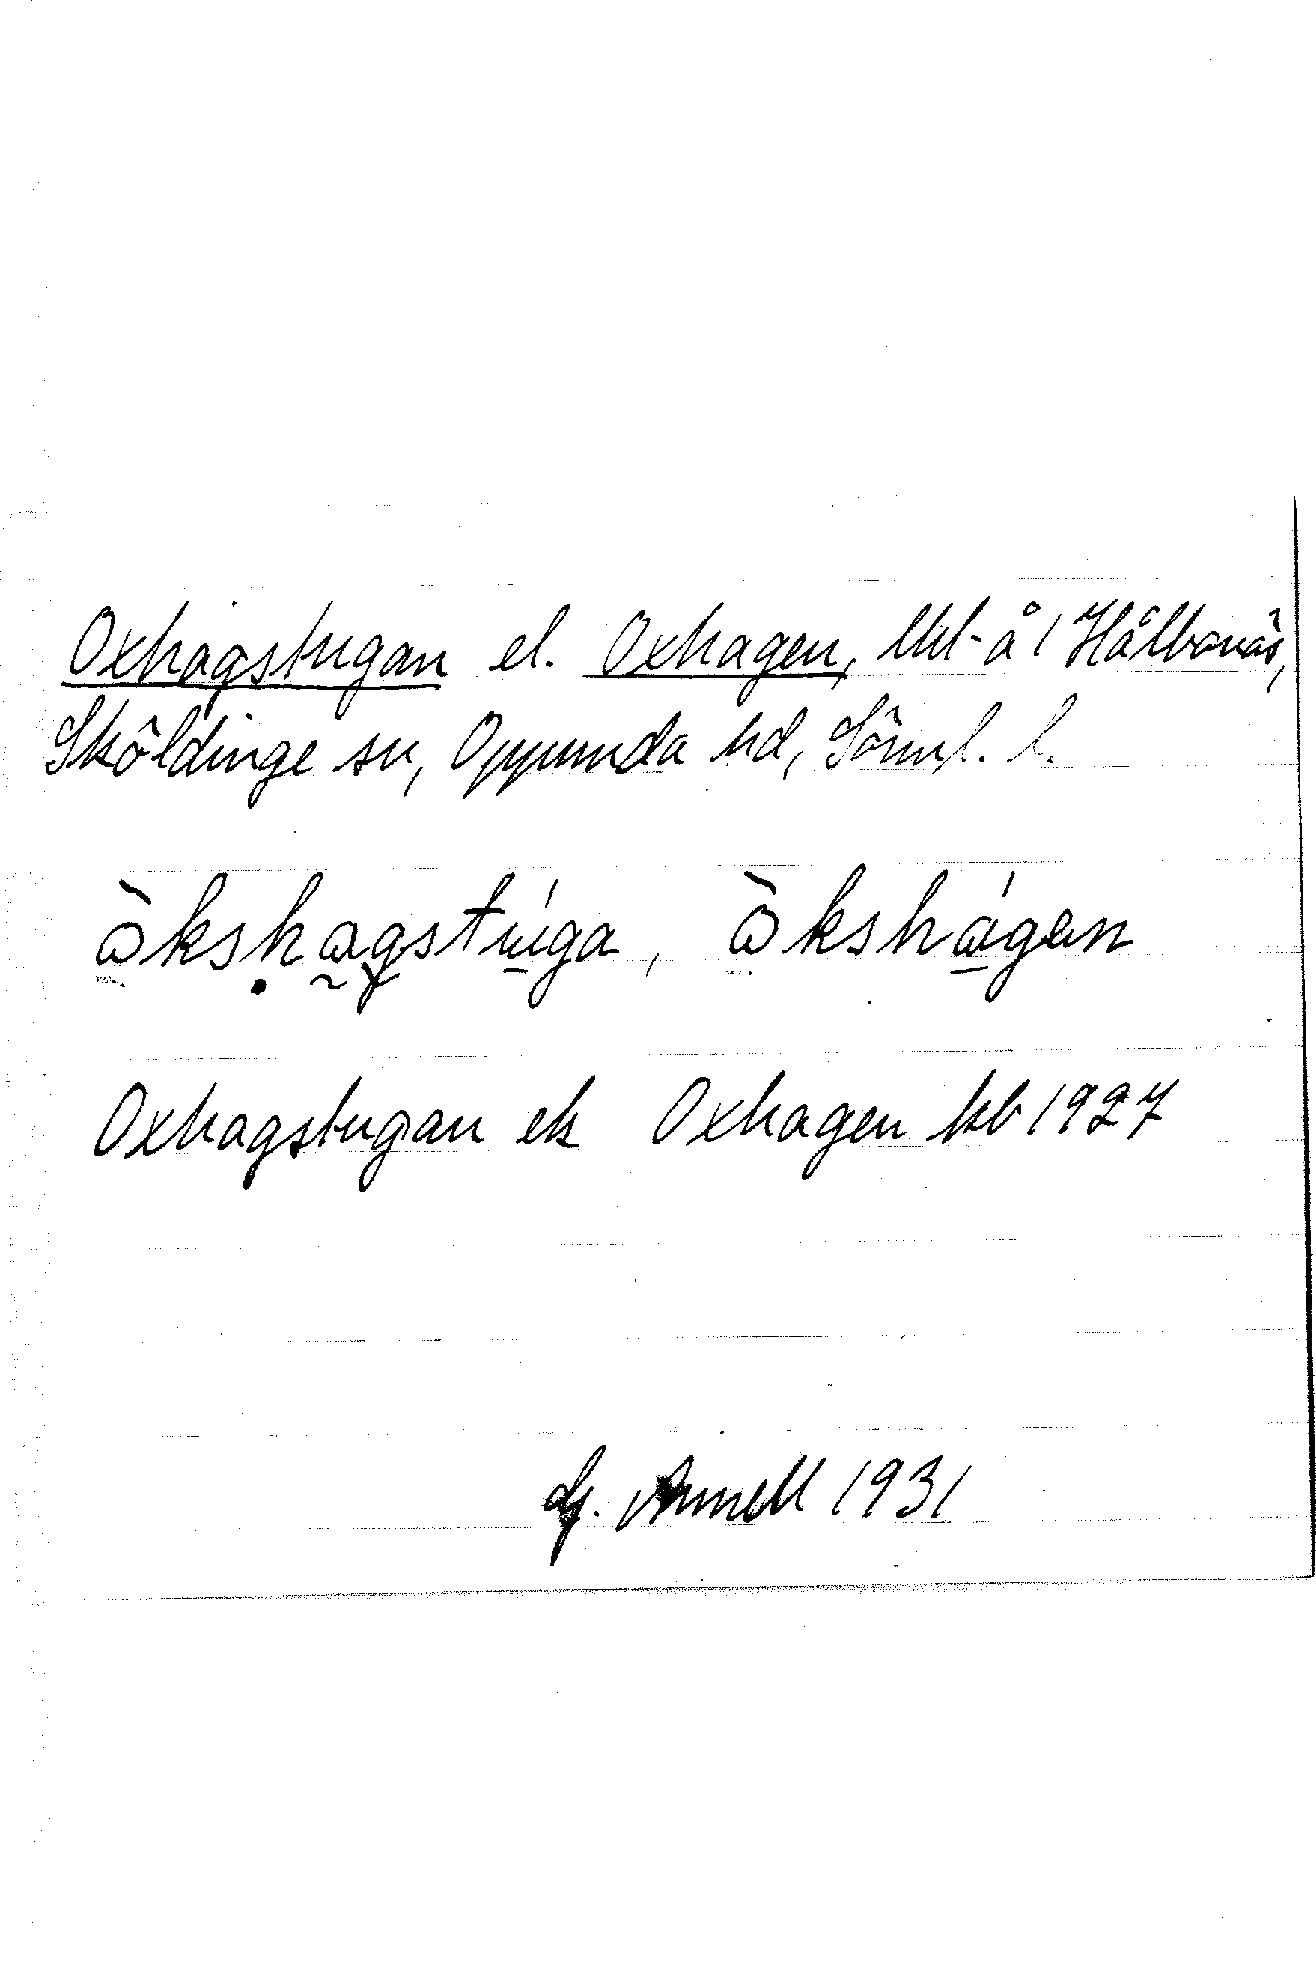 Oxhagstugan el. Oxhagen, lht å 1 Hålbonäs,
Sköldinge sn, Oppunda hd, Sörml. l.
òkshagstúga, òkshágen
Oxhagstugan ek Oxhagen kb 1927
G. Annell 1931